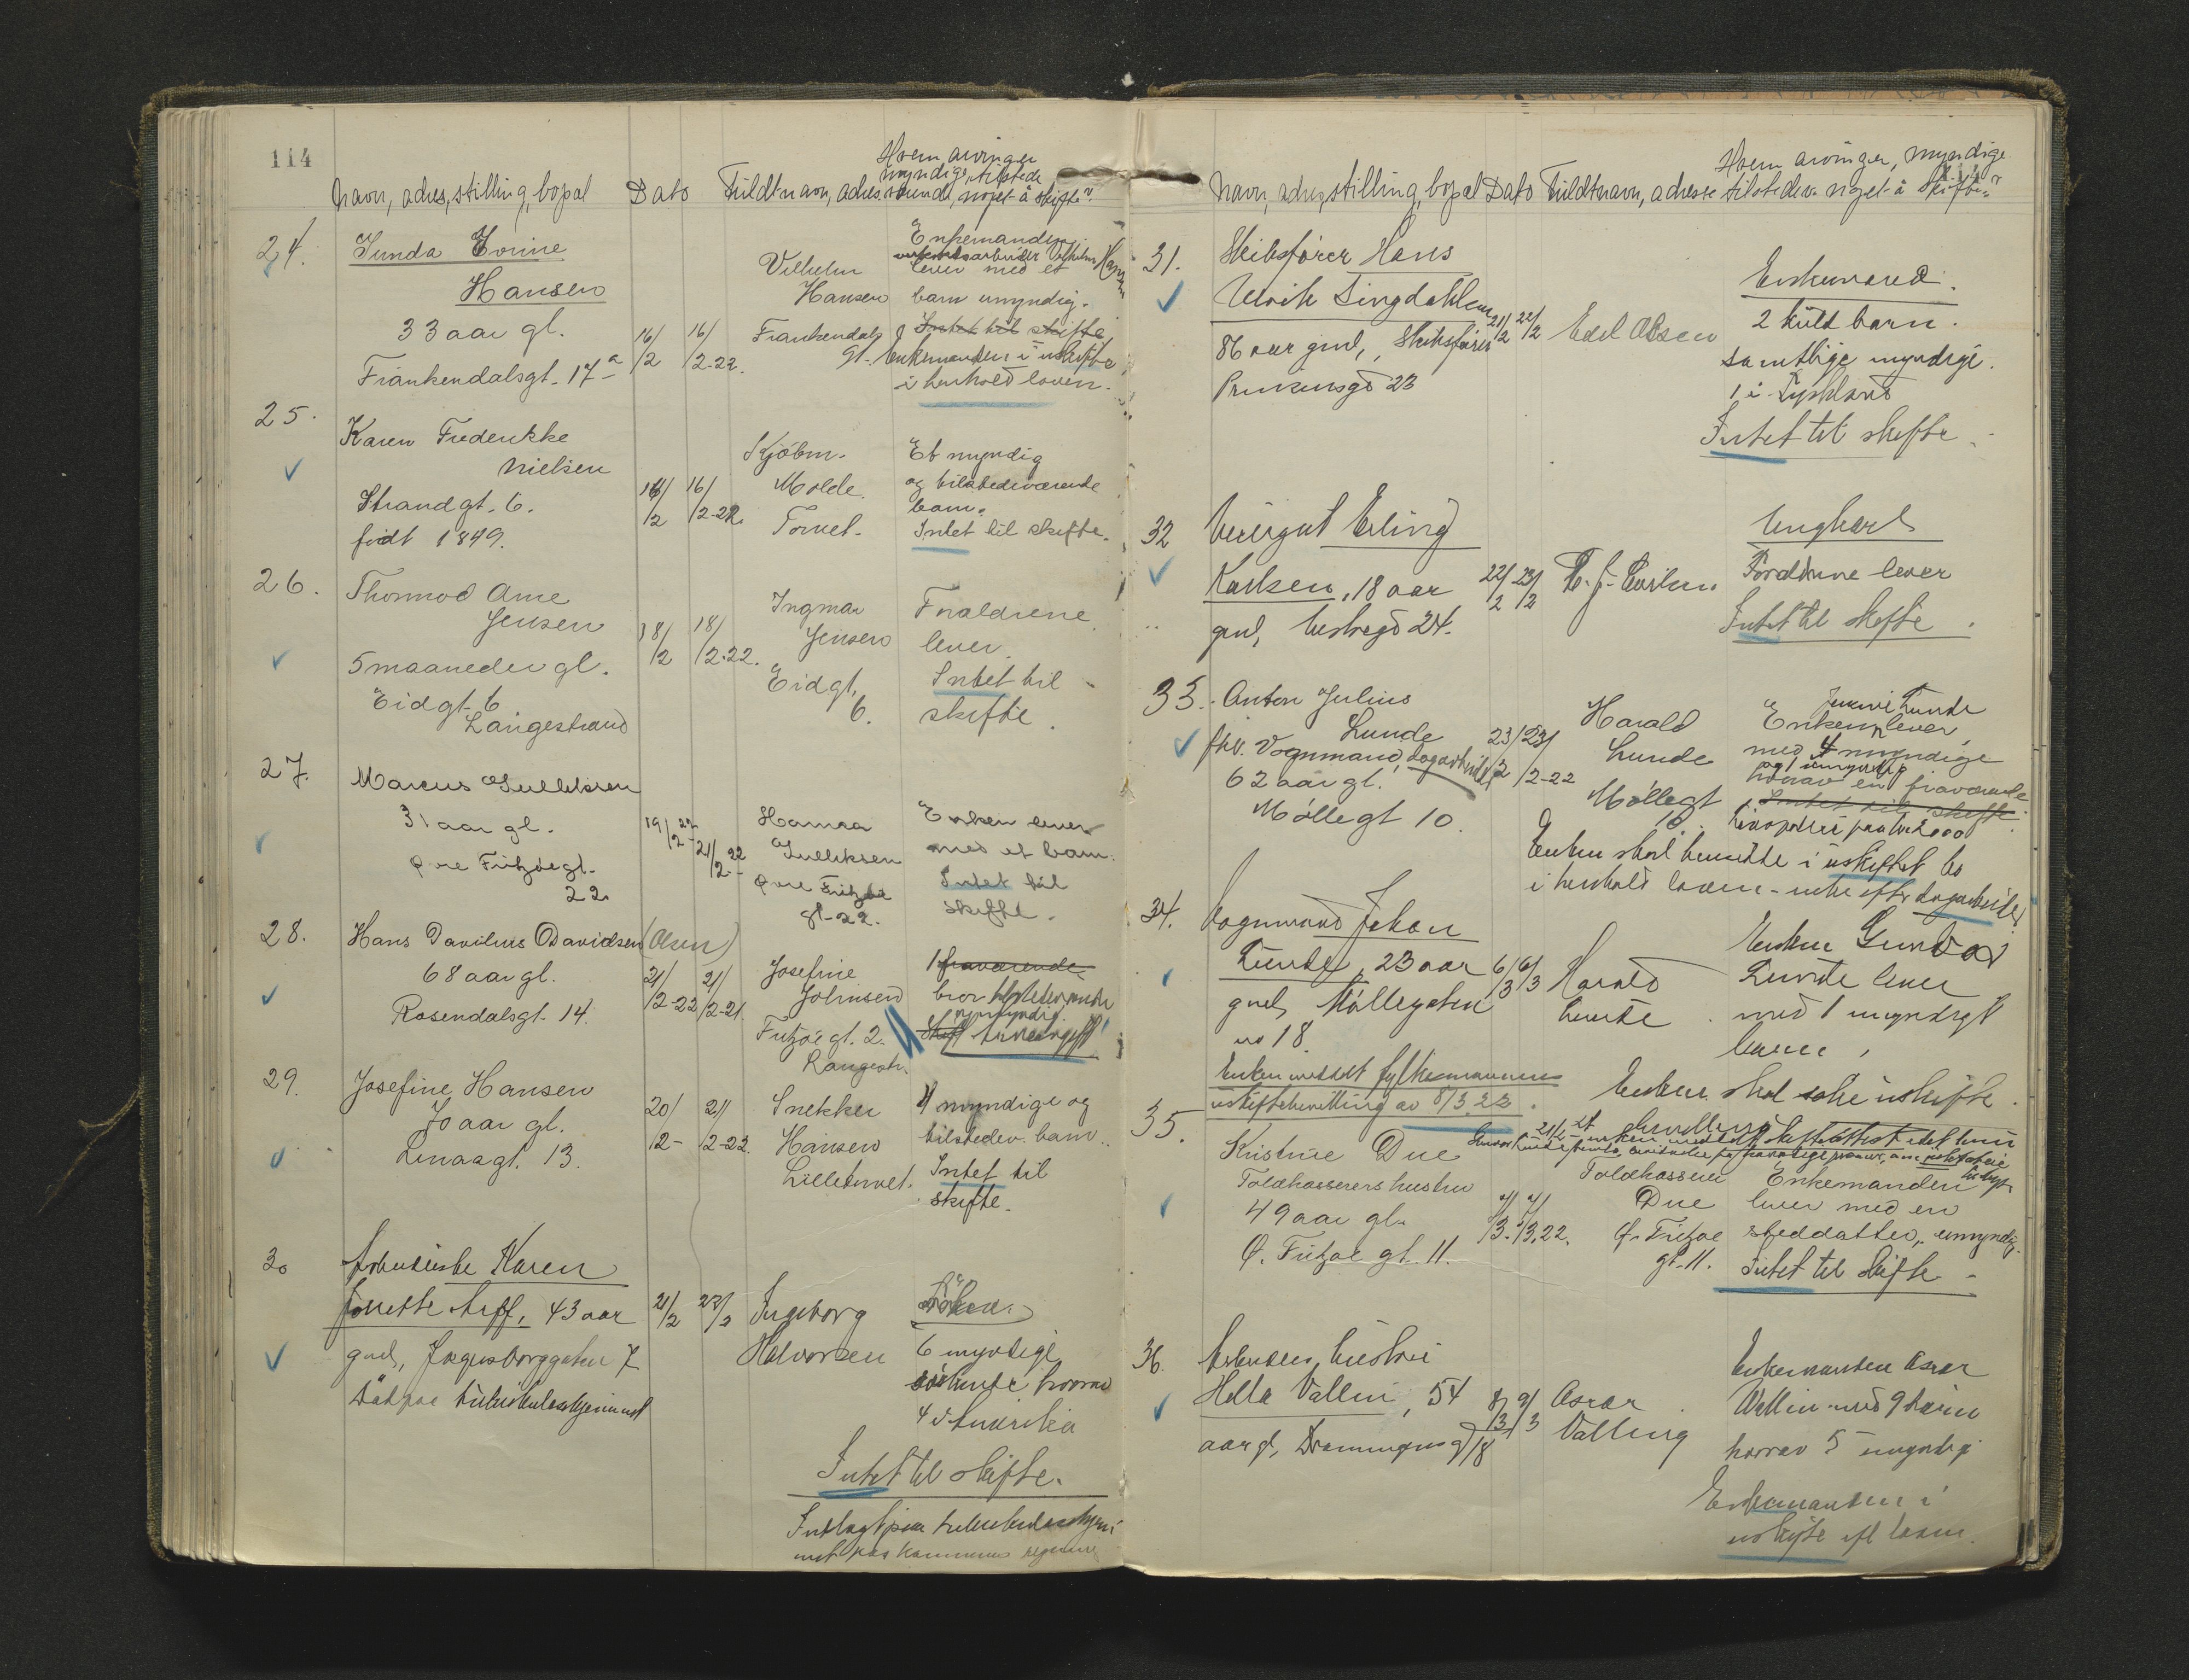 114
Navn, adres, stilling, bopæl Dato Fuldt navn, adres.
Hvem arvinger
myndige, tilstede
noget å skifte?
24.
Gunda Evine
Hansen
33 aar gl.
Frankendalsgt. 17 a
16/2 16/2-22.
Vilhelm
Hansen
Frankendals
gt.
Enkemanden
Vilhelm Hansen
lever med et
barn umyndig.
Intet til skifte
Enkemanden i uskifte
i henhold loven.
25.
Karen Fredrikke
Nielsen
Strandgt. 6.
født 1849.
16/2 16/2-22.
Kjøbm.
Molde.
Torvet.
Et myndig
og tilstedeværende
barn.
Intet til skifte.
26.
Thormod Arne
Jensen
5 maaneder gl.
Eidgt. 6
Langestrand
18/2 18/2-22.
Ingmar
Jensen
Eidgt.
6.
Foraldrene
lever.
Intet til
skifte.
27.
Marcus Gulliksen
31 aar gl.
Øvre Fritzøegt.
22.
19/2-22 21/2-22
Hanna
Gulliksen
Øvre Fritzøe
gt-22.
Enken lever
med et barn.
Intet til
skifte.
28.
Hans Davilius Davidsen (Olsen)
68 aar gl.
Rosendalsgt. 14.
21/2-22 21/2-21.
Josefine
Johnsen
Fritzøegt. 2.
Langestr.
1 fraværende
bror tilstedeværende
myndig.
29.
Josefine Hansen
70 aar gl.
Linaagt. 13.
20/2- 21/2-22.
Snekker
Hansen
Lilletorvet.
4 myndige og
tilstedev. barn.
Intet til
skifte.
30
Karen
43 aar
gml, Jegersborggaten 7
21/2 22/2
Ingeborg
Halvorsen
6 myndige
søskende hvorav
4 i Amerika
Intet til skifte.
Navn, adres, stilling, bopæl Dato Fuldt navn, adresse
Hvem arvinger, myndige
tilstedev. noget å skifte?
31.
Skibsfører Hans
Ulrik Lingdahlsen
86 aar gml, Skibsfører
Prinsensgd 23
21/2 22/2
Edel Olsen
Enkemand.
2 kuld barn.
samtlige myndige.
1 i Tyskland
Intet til skifte.
32
Erling
Karlsen, 18 aar
gml, Vestregd 24.
22/2 23/2
Ungkarl
Forældrene lever
Intet til skifte.
33.
Anton Julius
Lunde
fhv. Vognmand, dagarbeider
62 aar gl.
Møllegt 10.
23/2 23/2-22
Harald
Lunde
Møllegt
10.
Enken lever
med 4 myndige
og 1 umyndig
hvorav en fraværende
Intet til skifte.
Enken skal hensidde i uskiftet bo
i henhold loven - enke efter dagarbeider
34.
Vognmand Johan
Lunde, 23 aar
gml, Møllegaten
no 18.
6/3 6/3
Harald
Lunde
Enken Gunvor
Lunde lever
med 1 myndigt
barn.
Enken meddelt fylkesmannens
uskiftebevilling av 8/3.22.
Enken skal søke uskifte
bevilling
35.
Kristine Due
Toldkasserers hustru
49 aar gl.
Ø. Fritzøe gt. 11.
7/3. 7/3.22.
Toldkasserer
Due
Ø. Fritzøe
gt. 11.
Enkemanden
lever med en
steddatter, umyndig.
Intet til skifte.
36.
Arbeiders hustru
Hilda Vallin, 54
aar gl, Dronningensgd 18
8/3 9/3
Oscar
Valling
Enkemanden Oscar
Wallin med 9 børn
hvorav 5 umyndig
Enkemanden i
uskifte efl loven.